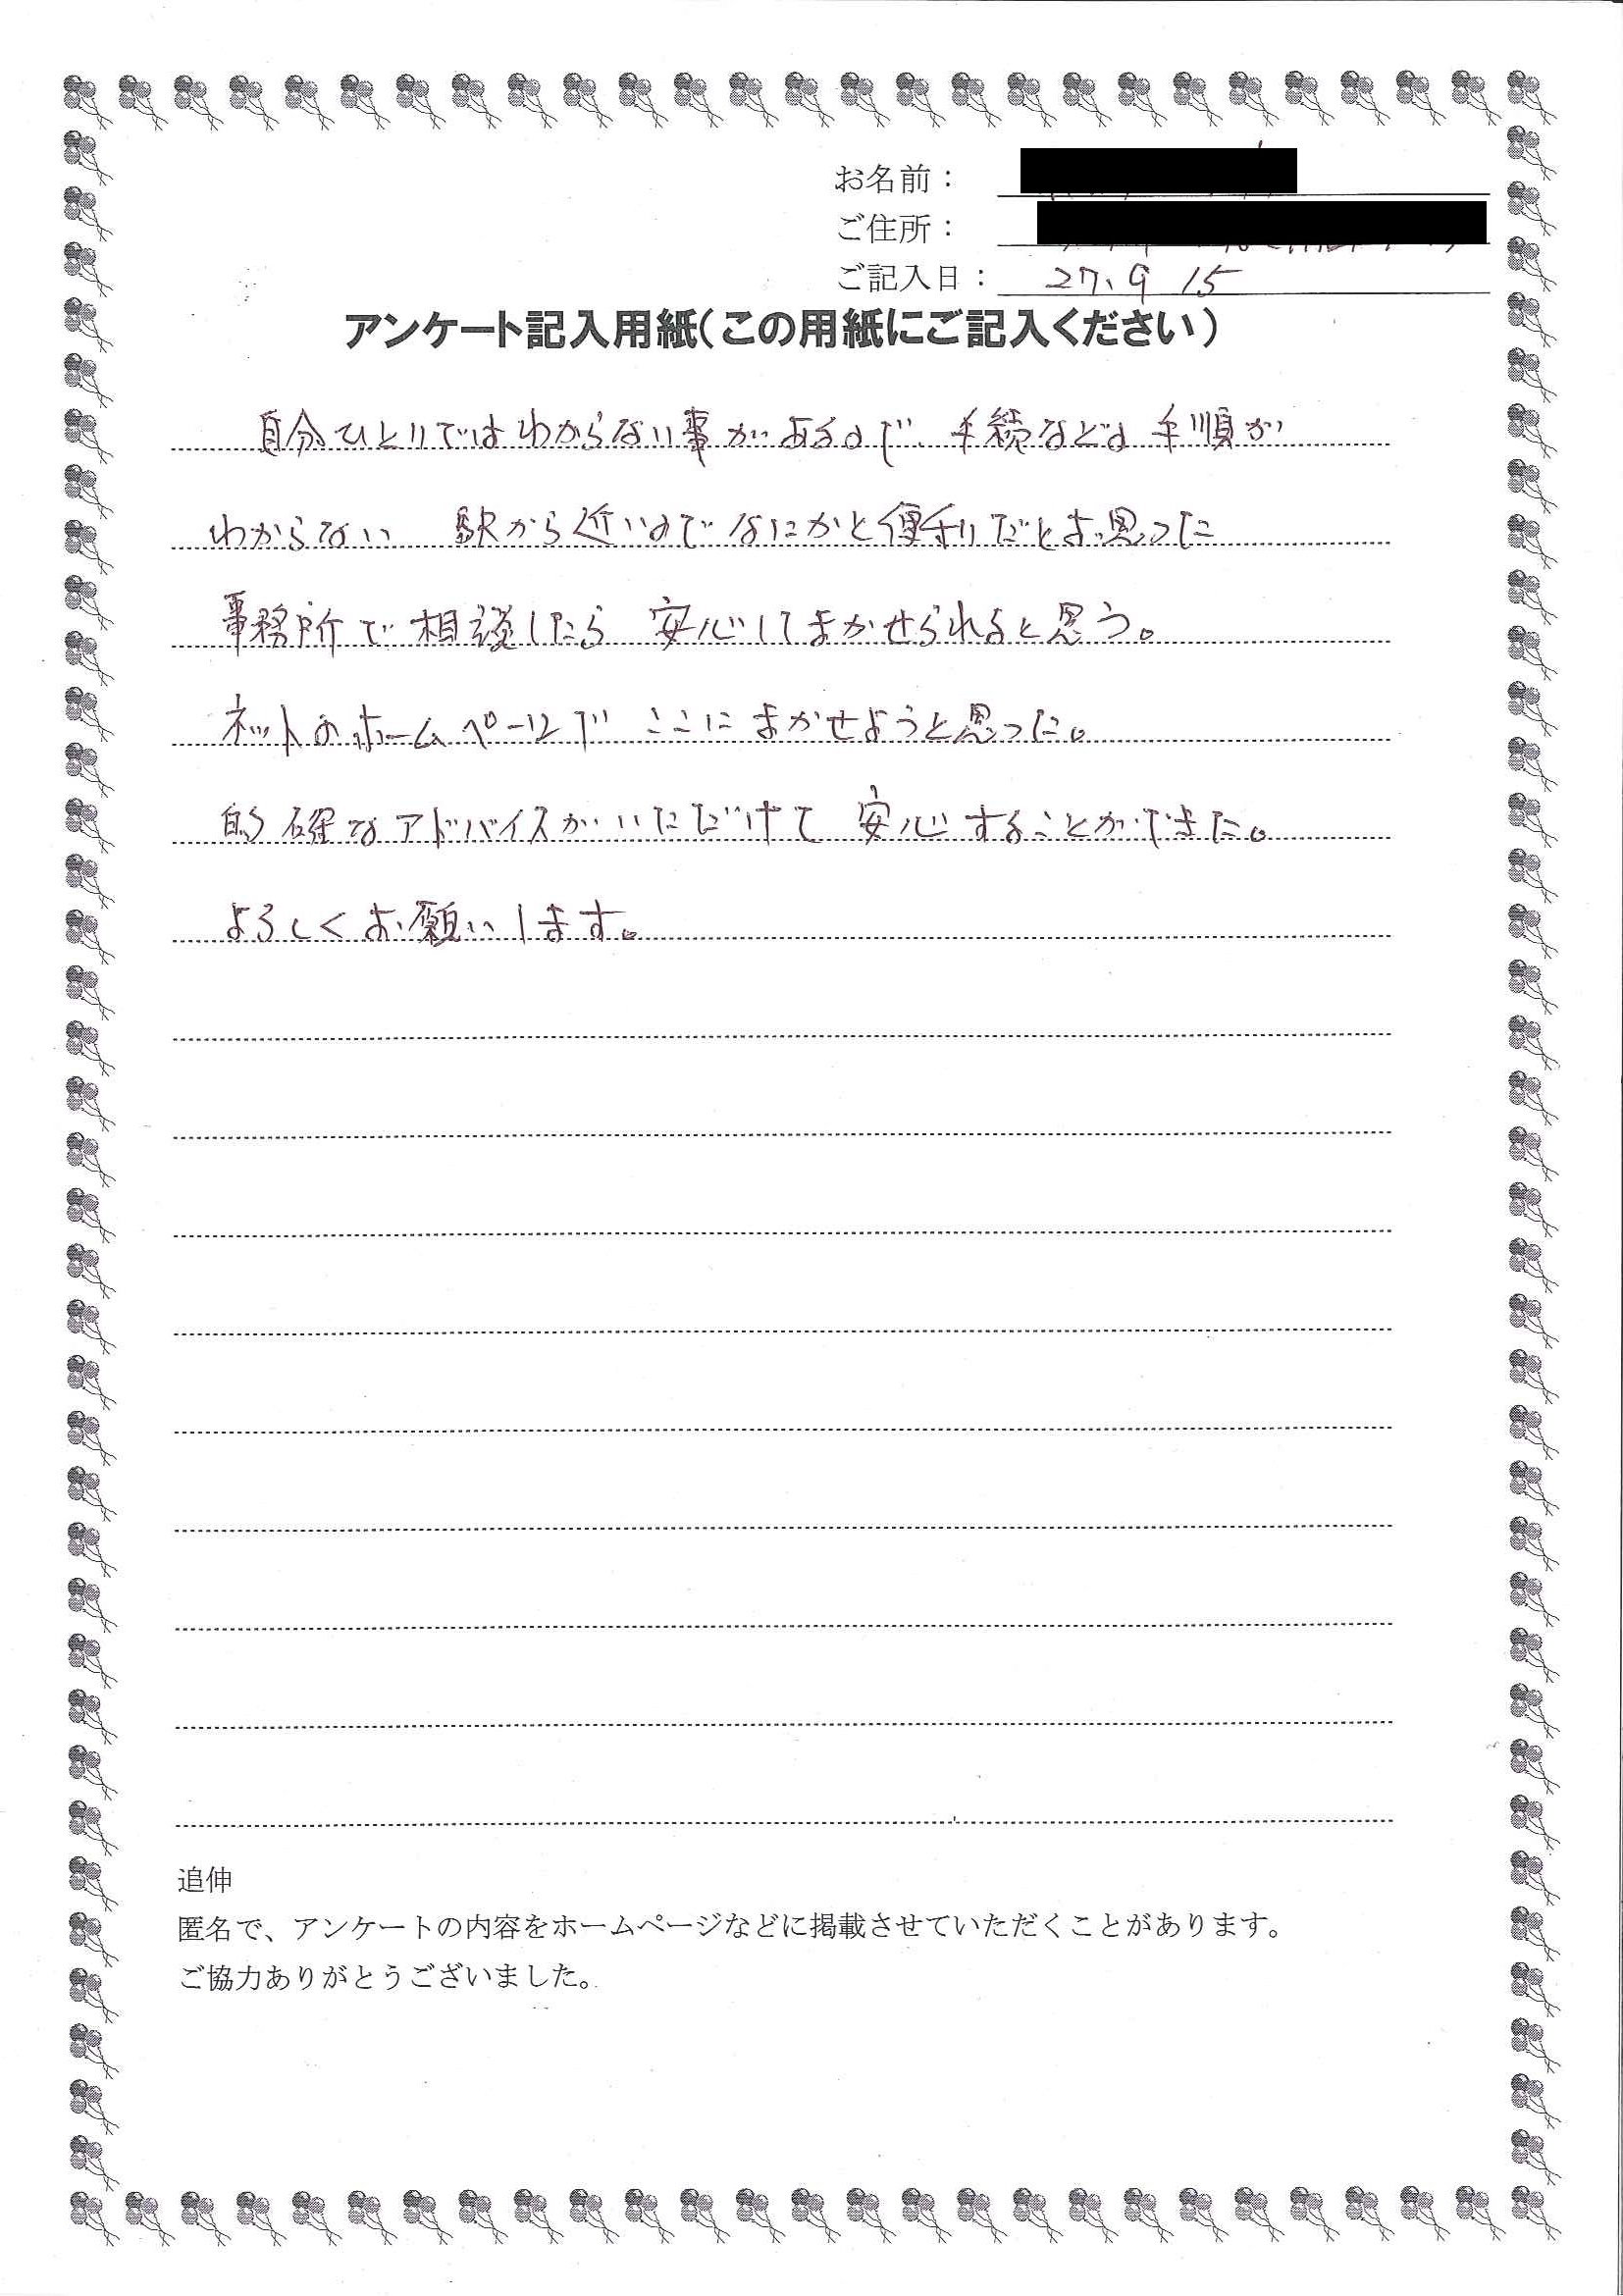 お名前：
ご住所：
ご記入日： 27、9 15
アンケート記入用紙（この用紙にご記入ください）
自分ひとりではわからない事があるので、手続などの手順が
わからない 駅から近いのでなにかと便利だとも思った
事務所で相談したら 安心してまかせられると思う。
ネットのホームページで ここにまかせようと思った。
的確なアドバイスがいただけて 安心することができた。
よろしくお願いします。
追伸
匿名で、アンケートの内容をホームページなどに掲載させていただくことがあります。
ご協力ありがとうございました。